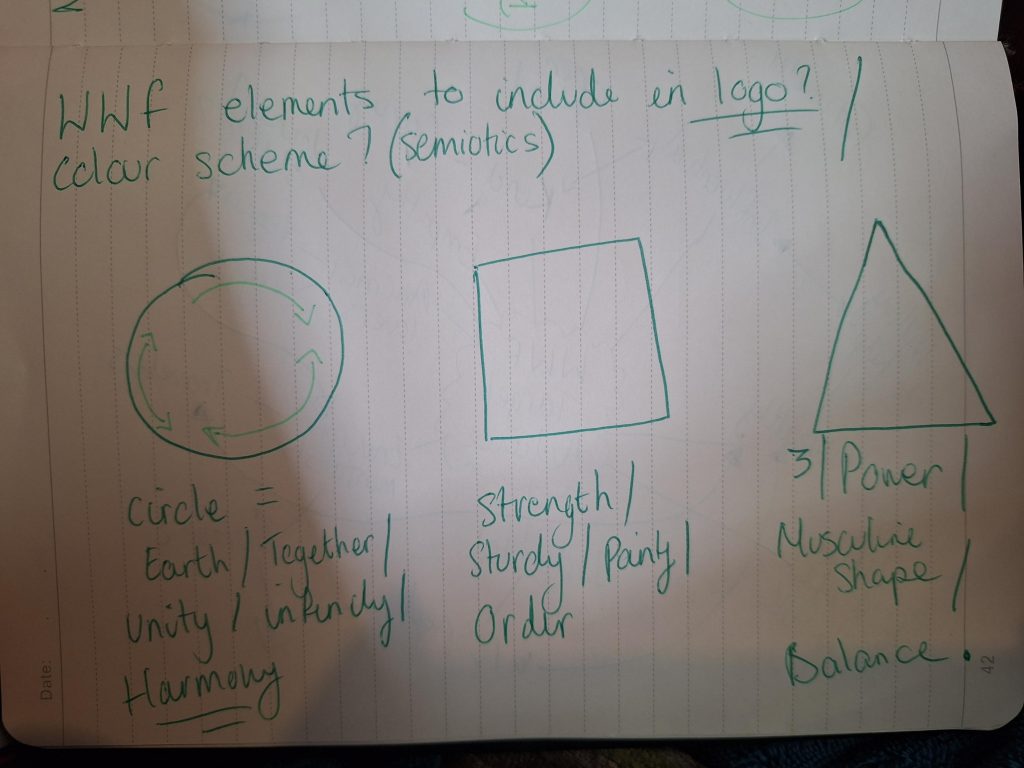 WWF elements to include in logo? /
colour scheme? (semiotics)
circle =
Earth / Together /
Unity / infinity /
Harmony
Strength /
Sturdy / Painty /
Order
3 / Power /
Musculine
Shape /
Balance .
Date:
42